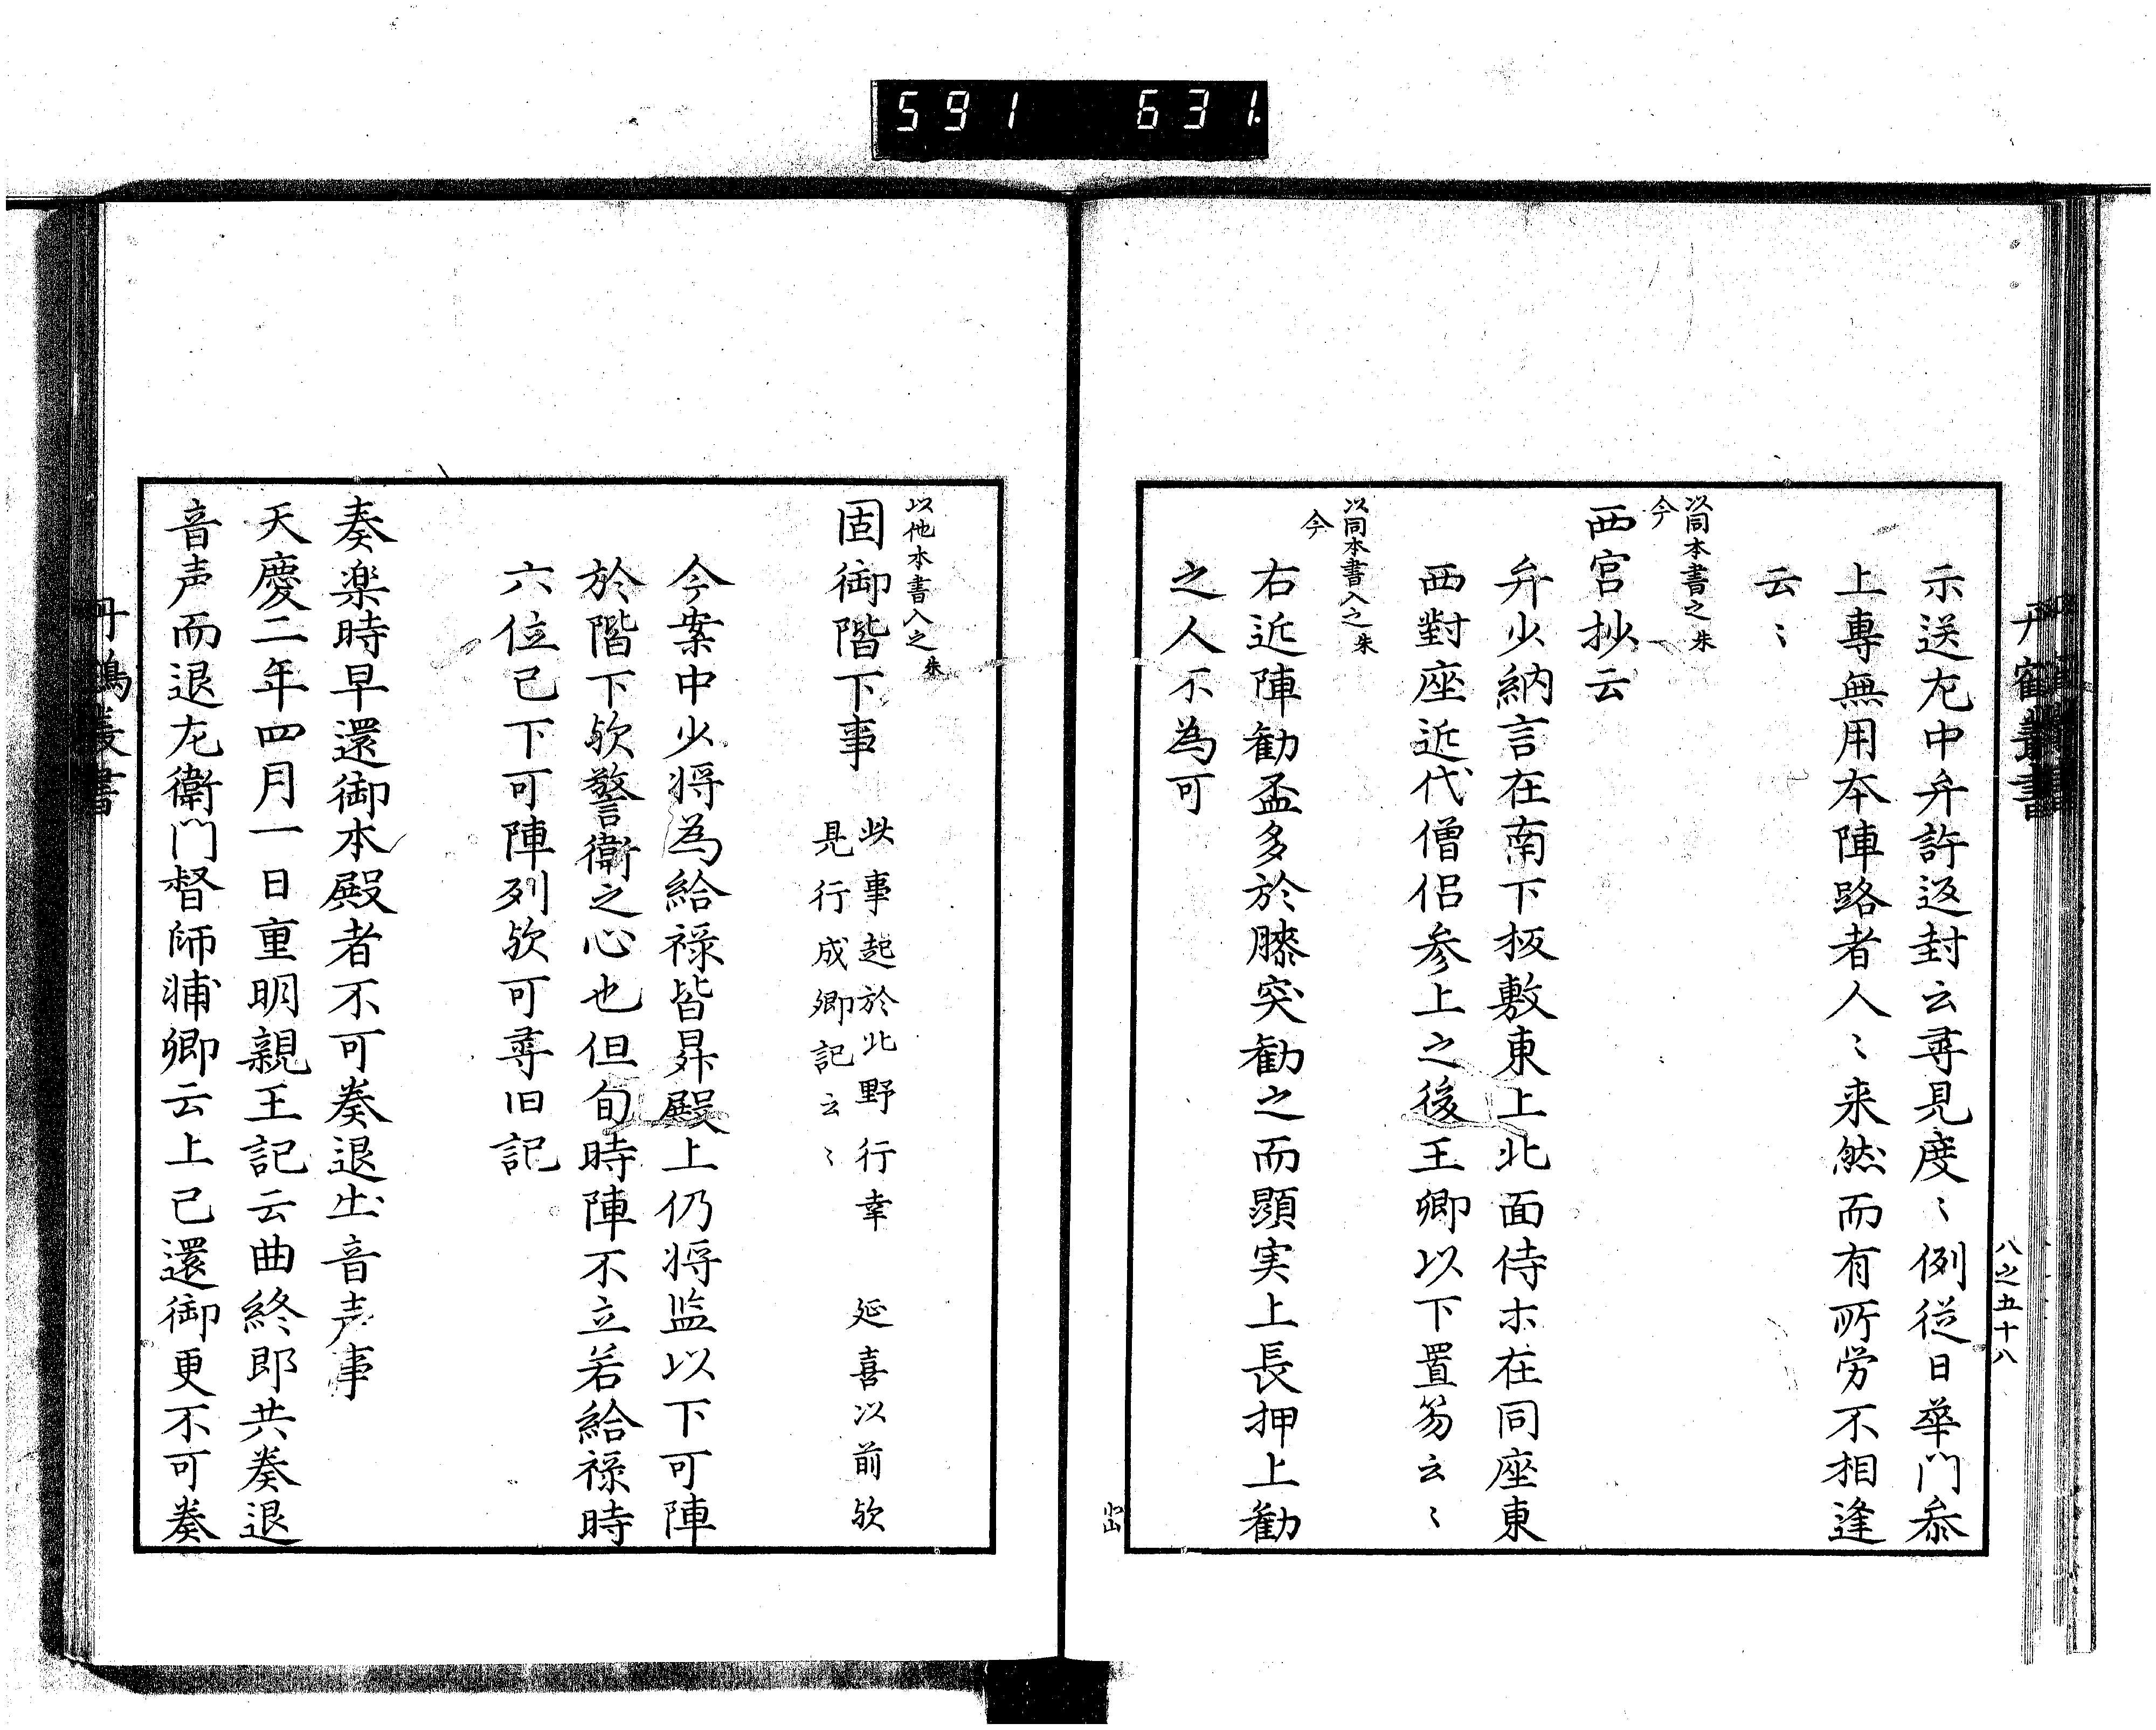 591 631.
丹鶴叢書
八之五十八
示送左中弁許返封云尋見度〻例従日華門参
上専無用本陣路者人〻来然而有所労不相逢
云〻
以同本書之朱
今
西宮抄云
弁少納言在南下板敷東上北面侍木在同座東
西對座近代僧侶参上之後王卿以下置笏云〻
以同本書入之朱
今
右近陣勧盃多於膝突勧之而顕実上長押上勧
之人不為可
以他本書入之朱
固御階下事
此事起於北野行幸 延喜以前欤
見行成卿記云〻
今案中少将為給禄皆昇殿上仍将监以下可陣
於階下欤警衛之心也但旬時陣不立若給禄時
六位已下可陣列欤可尋旧記
奏楽時早還御本殿者不可奏退出音声事
天慶二年四月一日重明親王記云曲終郎共奏退
音声而退左衛門督師輔卿云上已還御更不可奏
丹鶴叢書